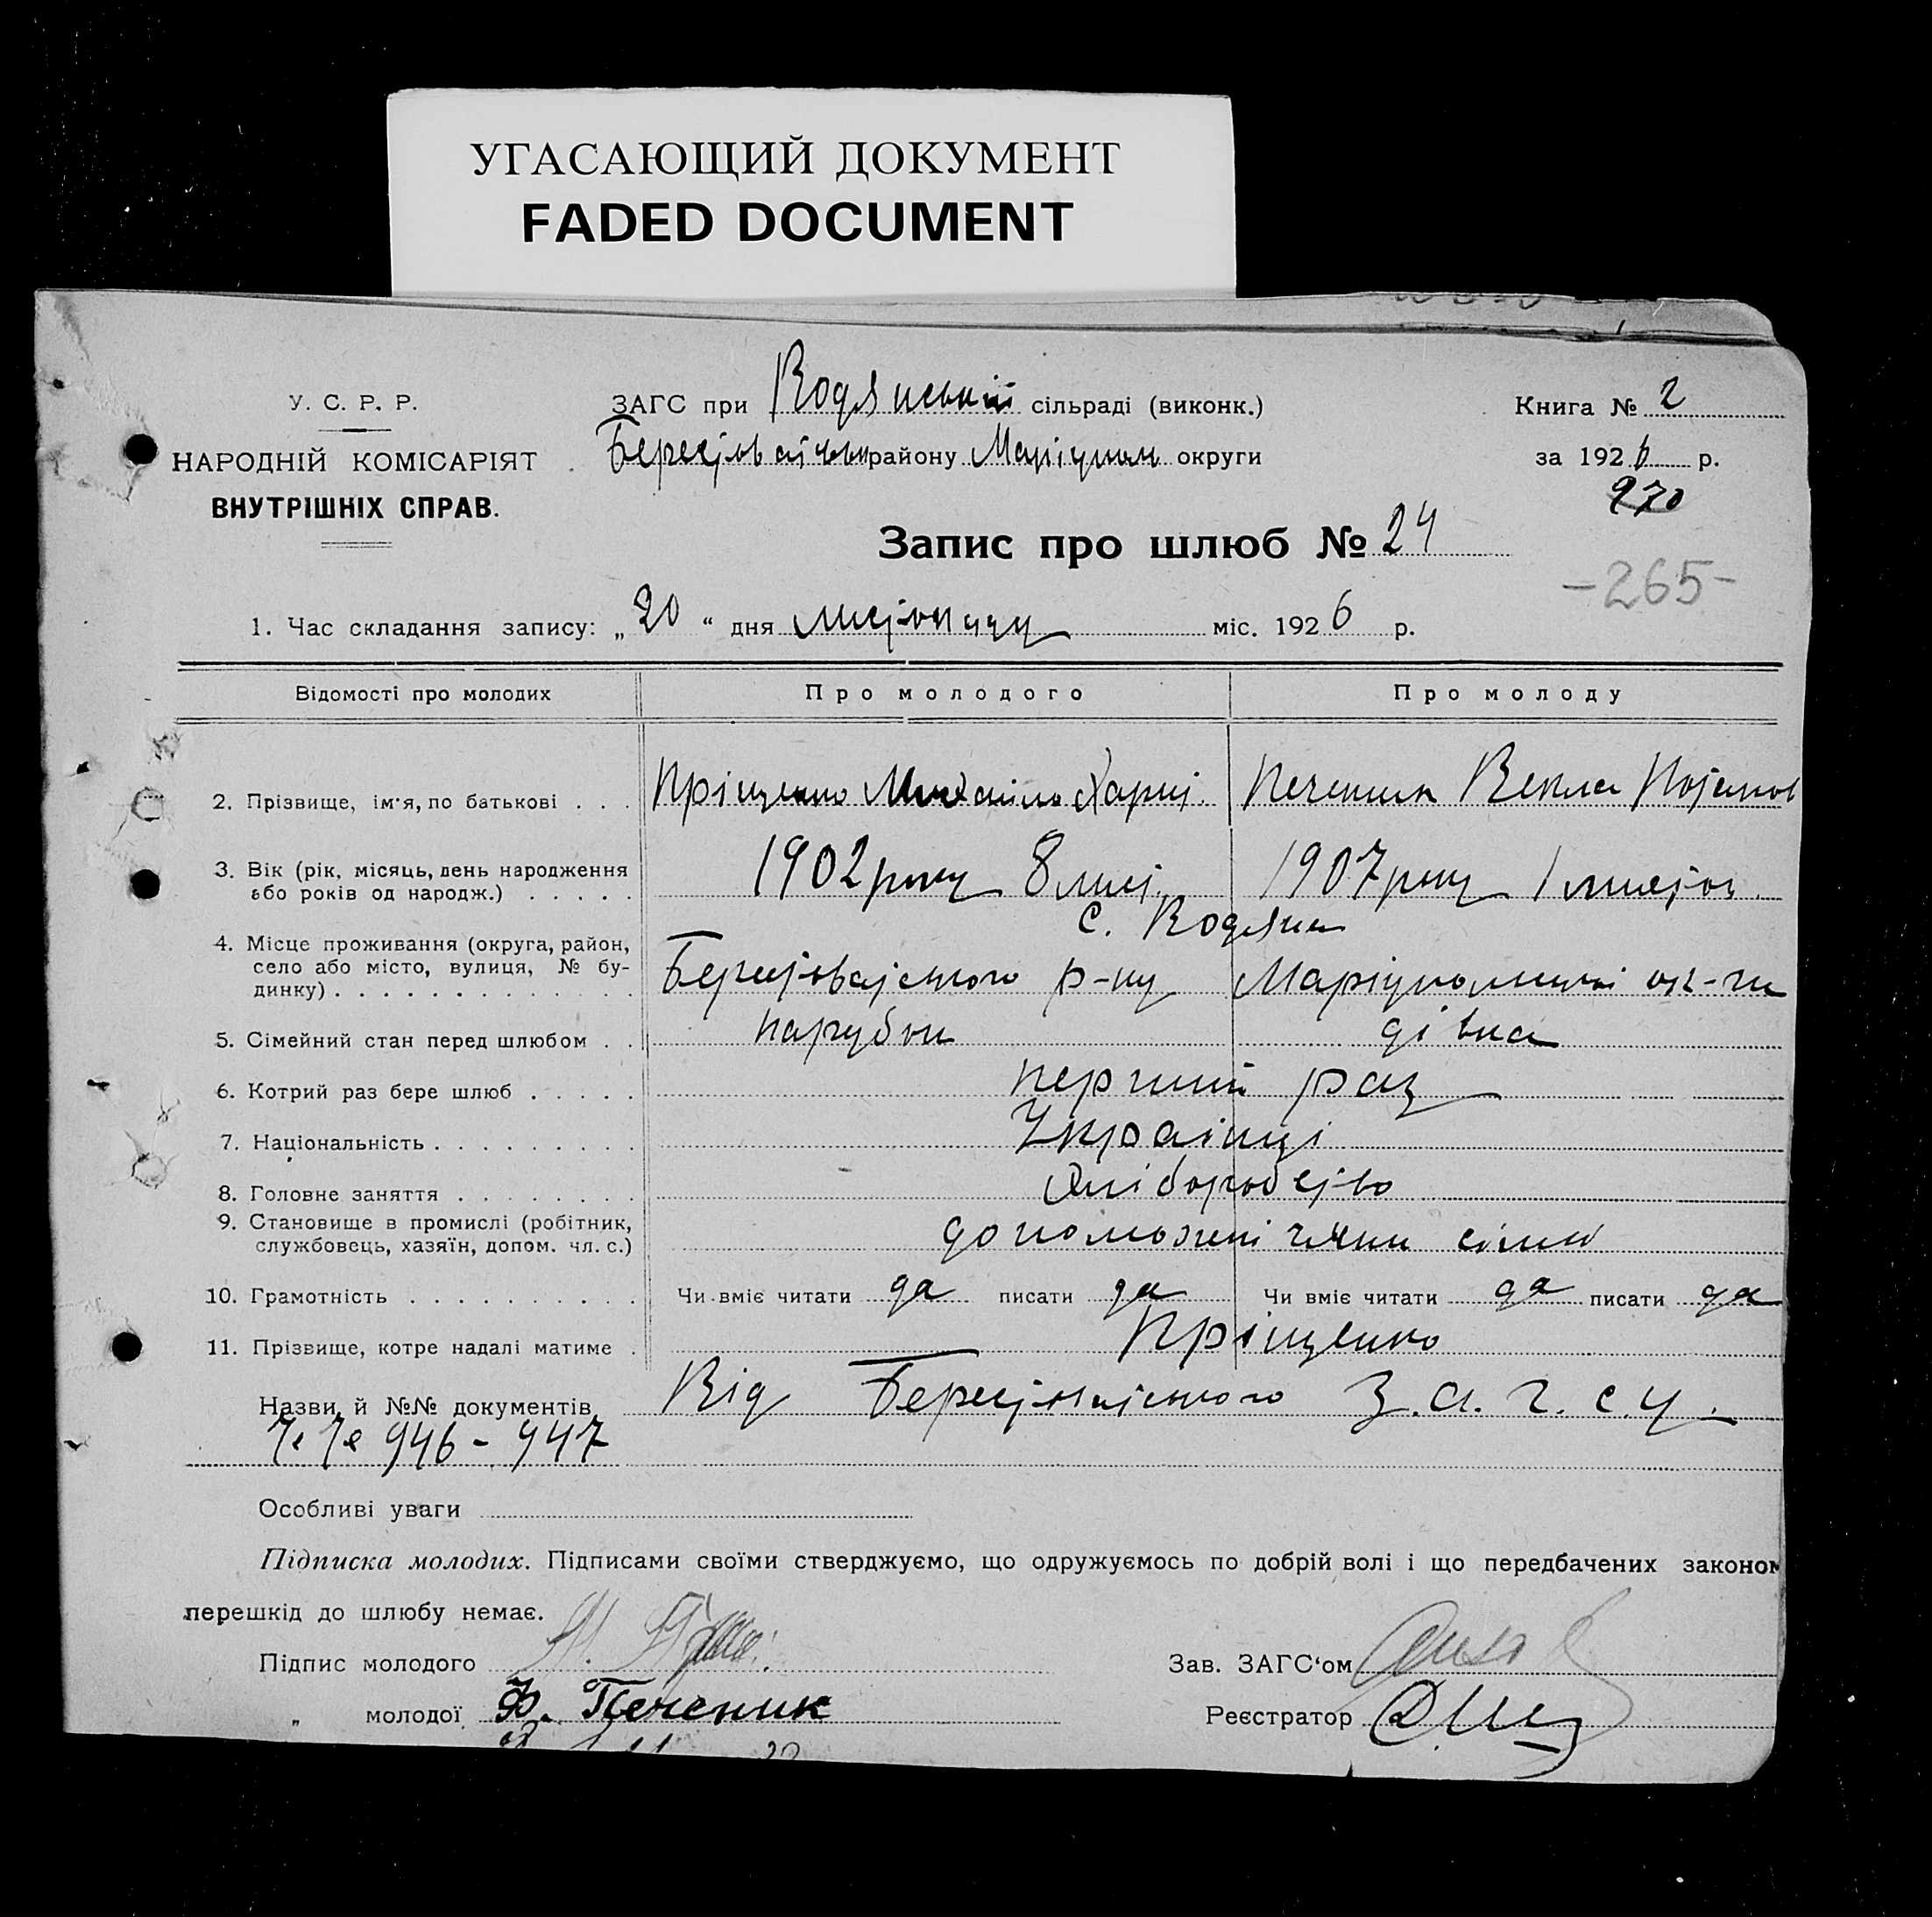 УГАСАЮЩИЙ ДОКУМЕНТ
FADED DOCUMENT
У. С. Р. Р.
НАРОДНІЙ КОМІСАРІЯТ
ВНУТРІШНІХ СПРАВ.
ЗАГС при Водянській сільраді (виконк.)
району Маріупол округи
Книга № 2
за 1926 р.
970
Запис про шлюб № 24
-265-
1. Час складання запису: „20“ дня листопаду міс. 1926 р.
Відомості про молодих
Про молодого
Про молоду
2. Прізвище, ім'я, по батькові . . .
Пріщенко Михайло Харит.
Печеник Векла Потапов
3. Вік (рік, місяць, день народження
або років од народж.) . . . . .
1902 року 8 лист.
1907 року 1 листоп.
4. Місце проживання (округа, район,
село або місто, вулиця, № бу-
динку) . . . . . . . . . . . . .
с. Водяна
Берестоватського р-ну Маріупольської ок-ги
5. Сімейний стан перед шлюбом . .
парубок
дівка
6. Котрий раз бере шлюб . . . . .
перший раз
7. Національність . . . . . . . . .
Українці
8. Головне заняття . . . . . . . .
Хліборобство
9. Становище в промислі (робітник,
службовець, хазяїн, допом. чл. с.)
допоможні члени сімї
10. Грамотність . . . . . . . . . .
Чи вміє читати да писати да
Чи вміє читати да писати да
11. Прізвище, котре надалі матиме .
Пріщенко
Назви й №№ документів Від Берестоватського З.а.г.с.у.
№№ 946-947
Особливі уваги
Підписка молодих. Підписами своїми стверджуємо, що одружуємось по добрій волі і що передбачених законом
перешкід до шлюбу немає.
Підпис молодого
Зав. ЗАГС'ом
„ молодої Ф. Печеник
Реєстратор